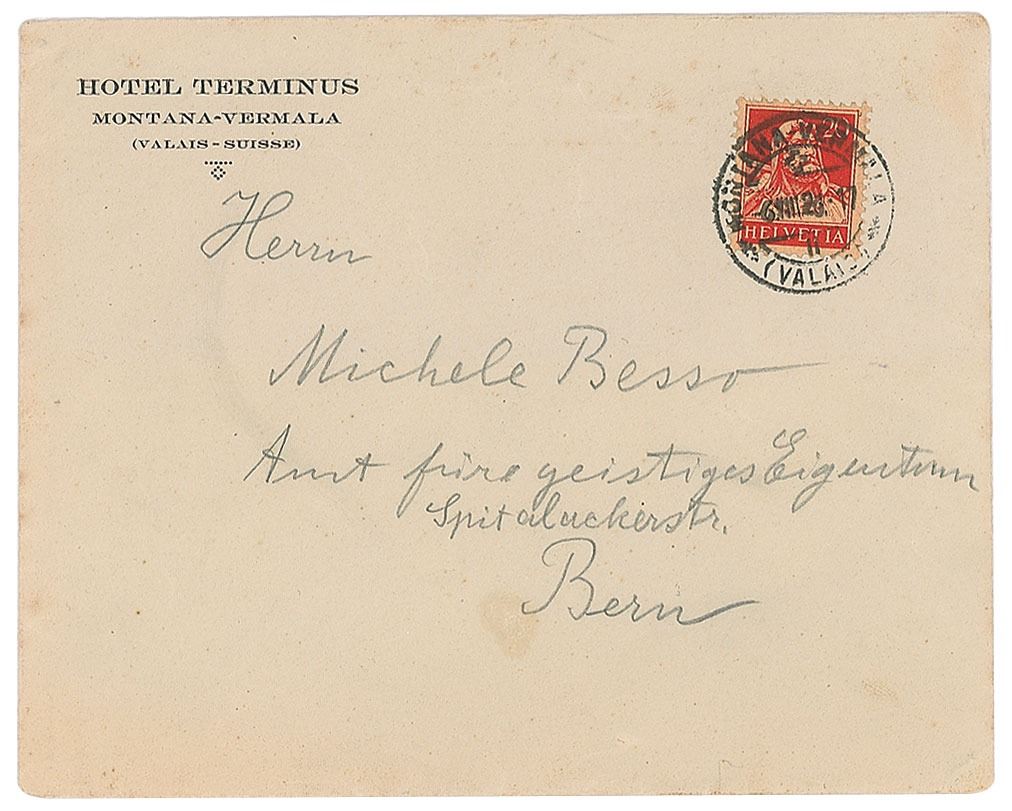 HOTEL TERMINUS
MONTANA-VERMALA
(VALAIS-SUISSE)
20
HELVETIA
MONTANA-VERMALA
6.VIII.
(VALAIS)
Herrn
Michele Besso
Amt für geistiges Eigentum
Spitalackerstr.
Bern